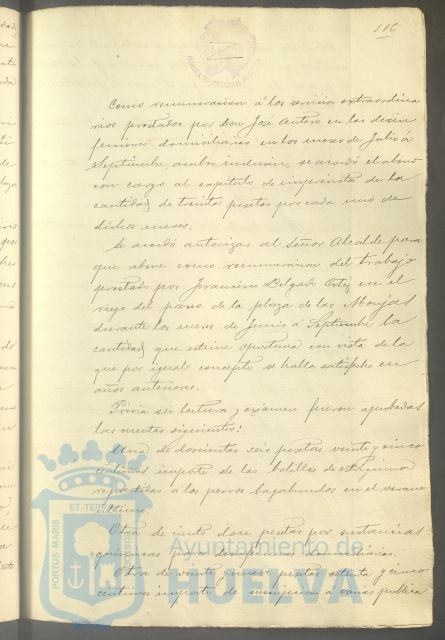 116
Como remuneracion á los servicios extraordina
rios prestados por Don José Antero en las desin
fecciones domiciliarias en los meses de Julio á
Septiembre ambos inclusive, se acordó el abono
con cargo al capitulo de imprevistos de la
cantidad de treinta pesetas por cada uno de
dichos meses.
Se acordó autorizar al Señor Alcalde para
que abone como remuneracion del trabajo
prestado por Francisco Delgado Ortiz en el
riego del paseo de la plaza de las Monjas
durante los meses de Junio á Septiembre la
cantidad que estime oportuna con vista de la
que por igual concepto se halla satisfecho en
años anteriores.
Prévia su lectura y exámen fueron aprobadas
las cuentas siguientes:
Una de doscientas seis pesetas veinte y cinco
centimos importe de las bolillas de estrignina
repartidas á los perros bagabundos en el verano
último.
Otra de ciento doce pesetas por sustancias
quimicas para desinfecciones domiciliarias.
Otra de veinte y nueve pesetas setenta y cinco
centimos importe de suscripcion á varias publica
PORTUS MARIS
ET TERRAE
Ayuntamiento de
HUELVA